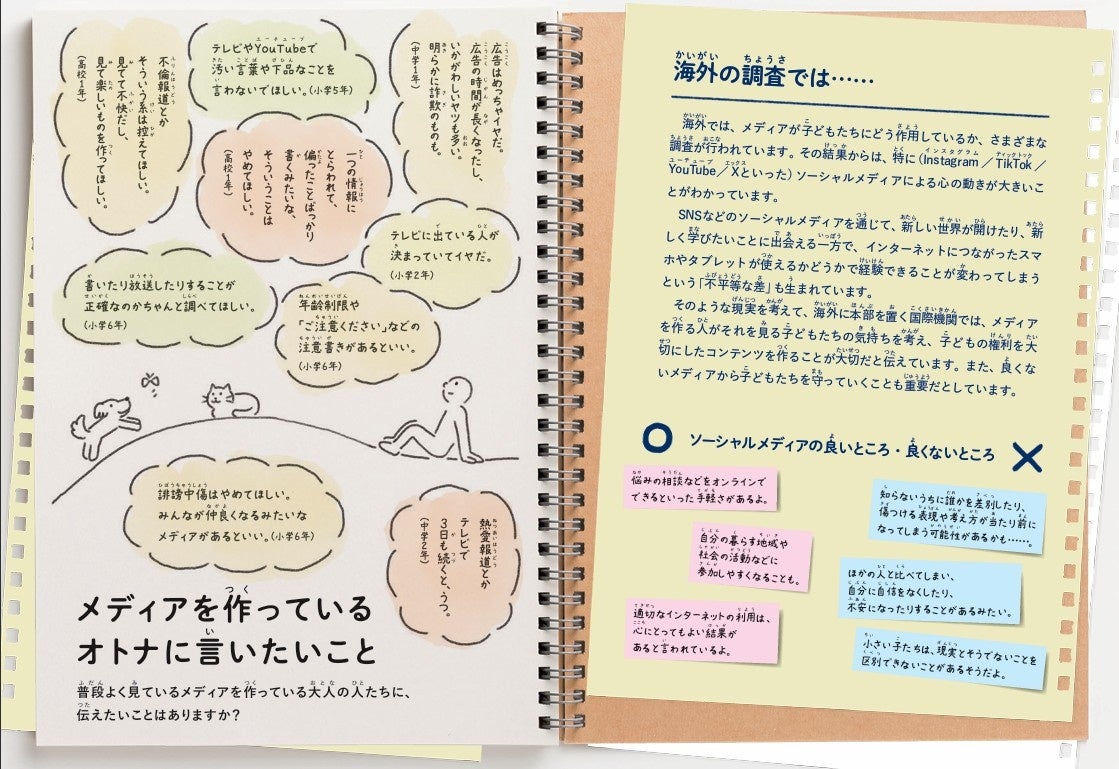 広告はめっちゃイヤだ。
広告の時間が長くなったし、
いかがわしいヤツも多い。
明らかに詐欺のものも。
(中学1年)
テレビやYouTubeで
汚い言葉や下品なことを
言わないでほしい。(小学5年)
不倫報道とか
そういう系は控えてほしい。
見てて不快だし、
見て楽しいものを作ってほしい。
(高校1年)
一つの情報に
とらわれて、
偏ったことばっかり
書くみたいな、
そういうことは
やめてほしい。
(高校1年)
テレビに出ている人が
決まっていてイヤだ。
(小学2年)
書いたり放送したりすることが
正確なのかちゃんと調べてほしい。
(小学6年)
年齢制限や
「ご注意ください」などの
注意書きがあるといい。
(小学6年)
誹謗中傷はやめてほしい。
みんなが仲良くなるみたいな
メディアがあるといい。(小学6年)
熱愛報道とか
テレビで
3日も続くと、うつ。
(中学2年)
メディアを作っている
オトナに言いたいこと
普段よく見ているメディアを作っている大人の人たちに、
伝えたいことはありますか?
海外の調査では……
海外では、メディアが子どもたちにどう作用しているか、さまざまな
調査が行われています。その結果からは、特に(Instagram/TikTok/
YouTube/Xといった)ソーシャルメディアによる心の動きが大きいこ
とがわかっています。
SNSなどのソーシャルメディアを通じて、新しい世界が開けたり、新
しく学びたいことに出会える一方で、インターネットにつながったスマ
ホやタブレットが使えるかどうかで経験できることが変わってしまう
という「不平等な差」も生まれています。
そのような現実を考えて、海外に本部を置く国際機関では、メディア
を作る人がそれを見る子どもたちの気持ちを考え、子どもの権利を大
切にしたコンテンツを作ることが大切だと伝えています。また、良くな
いメディアから子どもたちを守っていくことも重要だとしています。
ソーシャルメディアの良いところ・良くないところ
悩みの相談などをオンラインで
できるといった手軽さがあるよ。
自分の暮らす地域や
社会の活動などに
参加しやすくなることも。
適切なインターネットの利用は、
心にとってもよい結果が
あると言われているよ。
知らないうちに誰かを差別したり、
傷つける表現や考え方が当たり前に
なってしまう可能性があるかも……。
ほかの人と比べてしまい、
自分に自信をなくしたり、
不安になったりすることがあるみたい。
小さい子たちは、現実とそうでないことを
区別できないことがあるそうだよ。